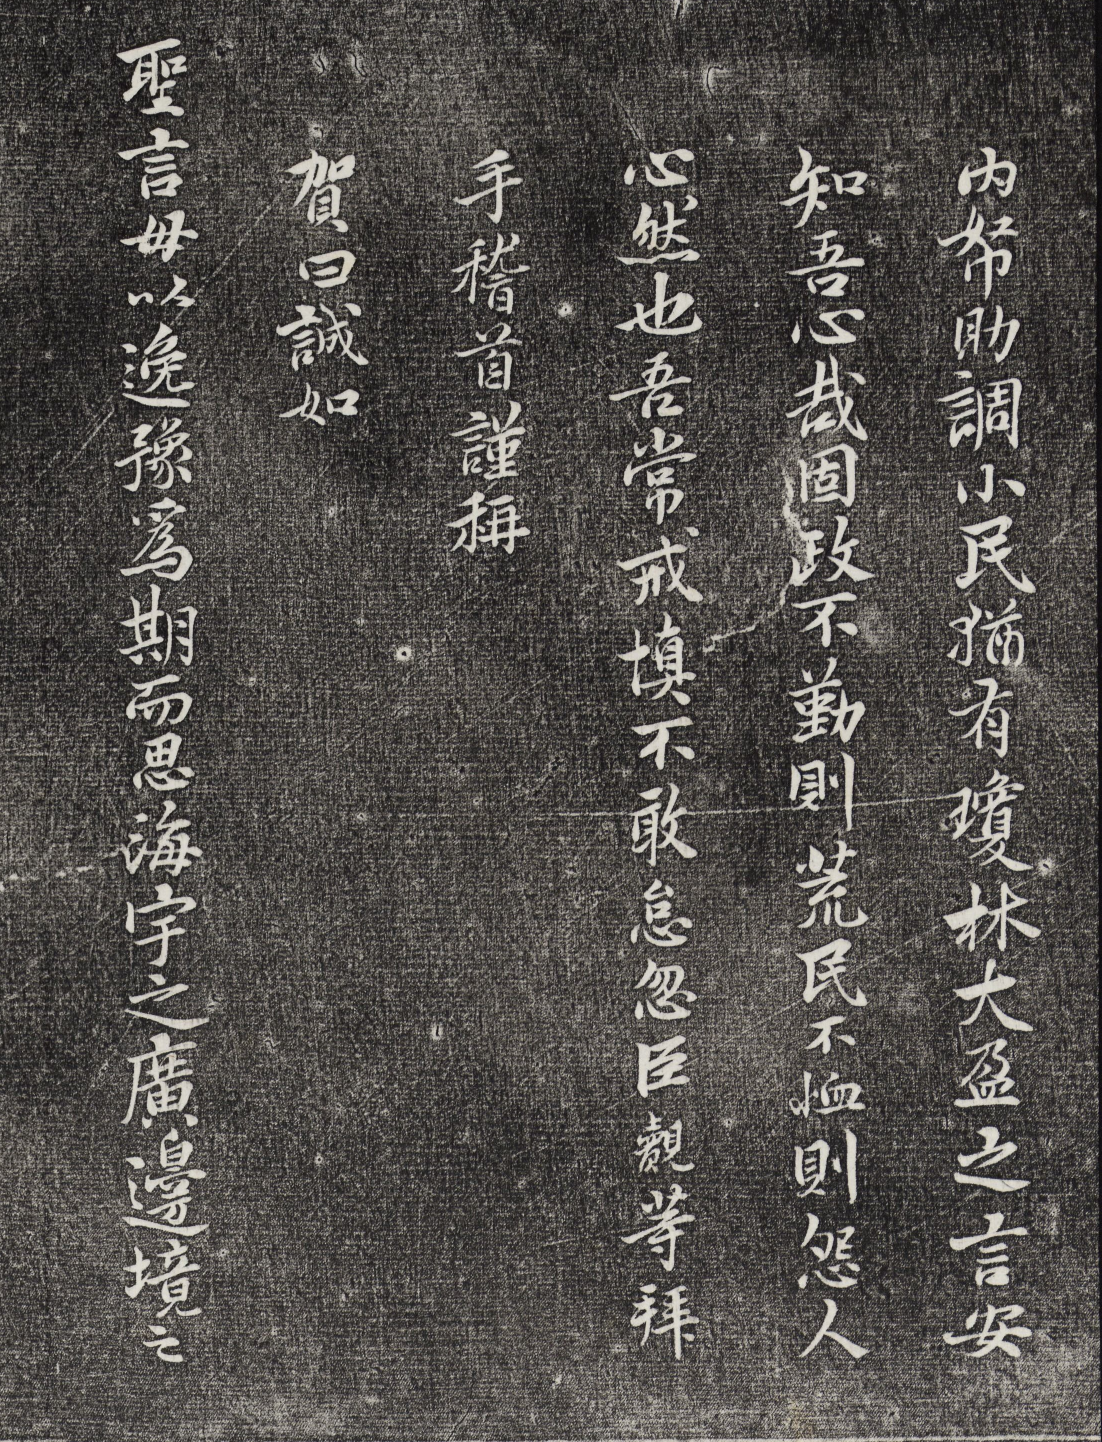 内帑助調小民猶有瓊林大盈之言安
知吾心哉固政不勤則荒民不恤則怨人
心然也吾常戒慎不敢怠忽臣觀等拜
手稽首謹稱
賀曰誠如
聖言毋以逸豫為期而思海宇之廣邊境之